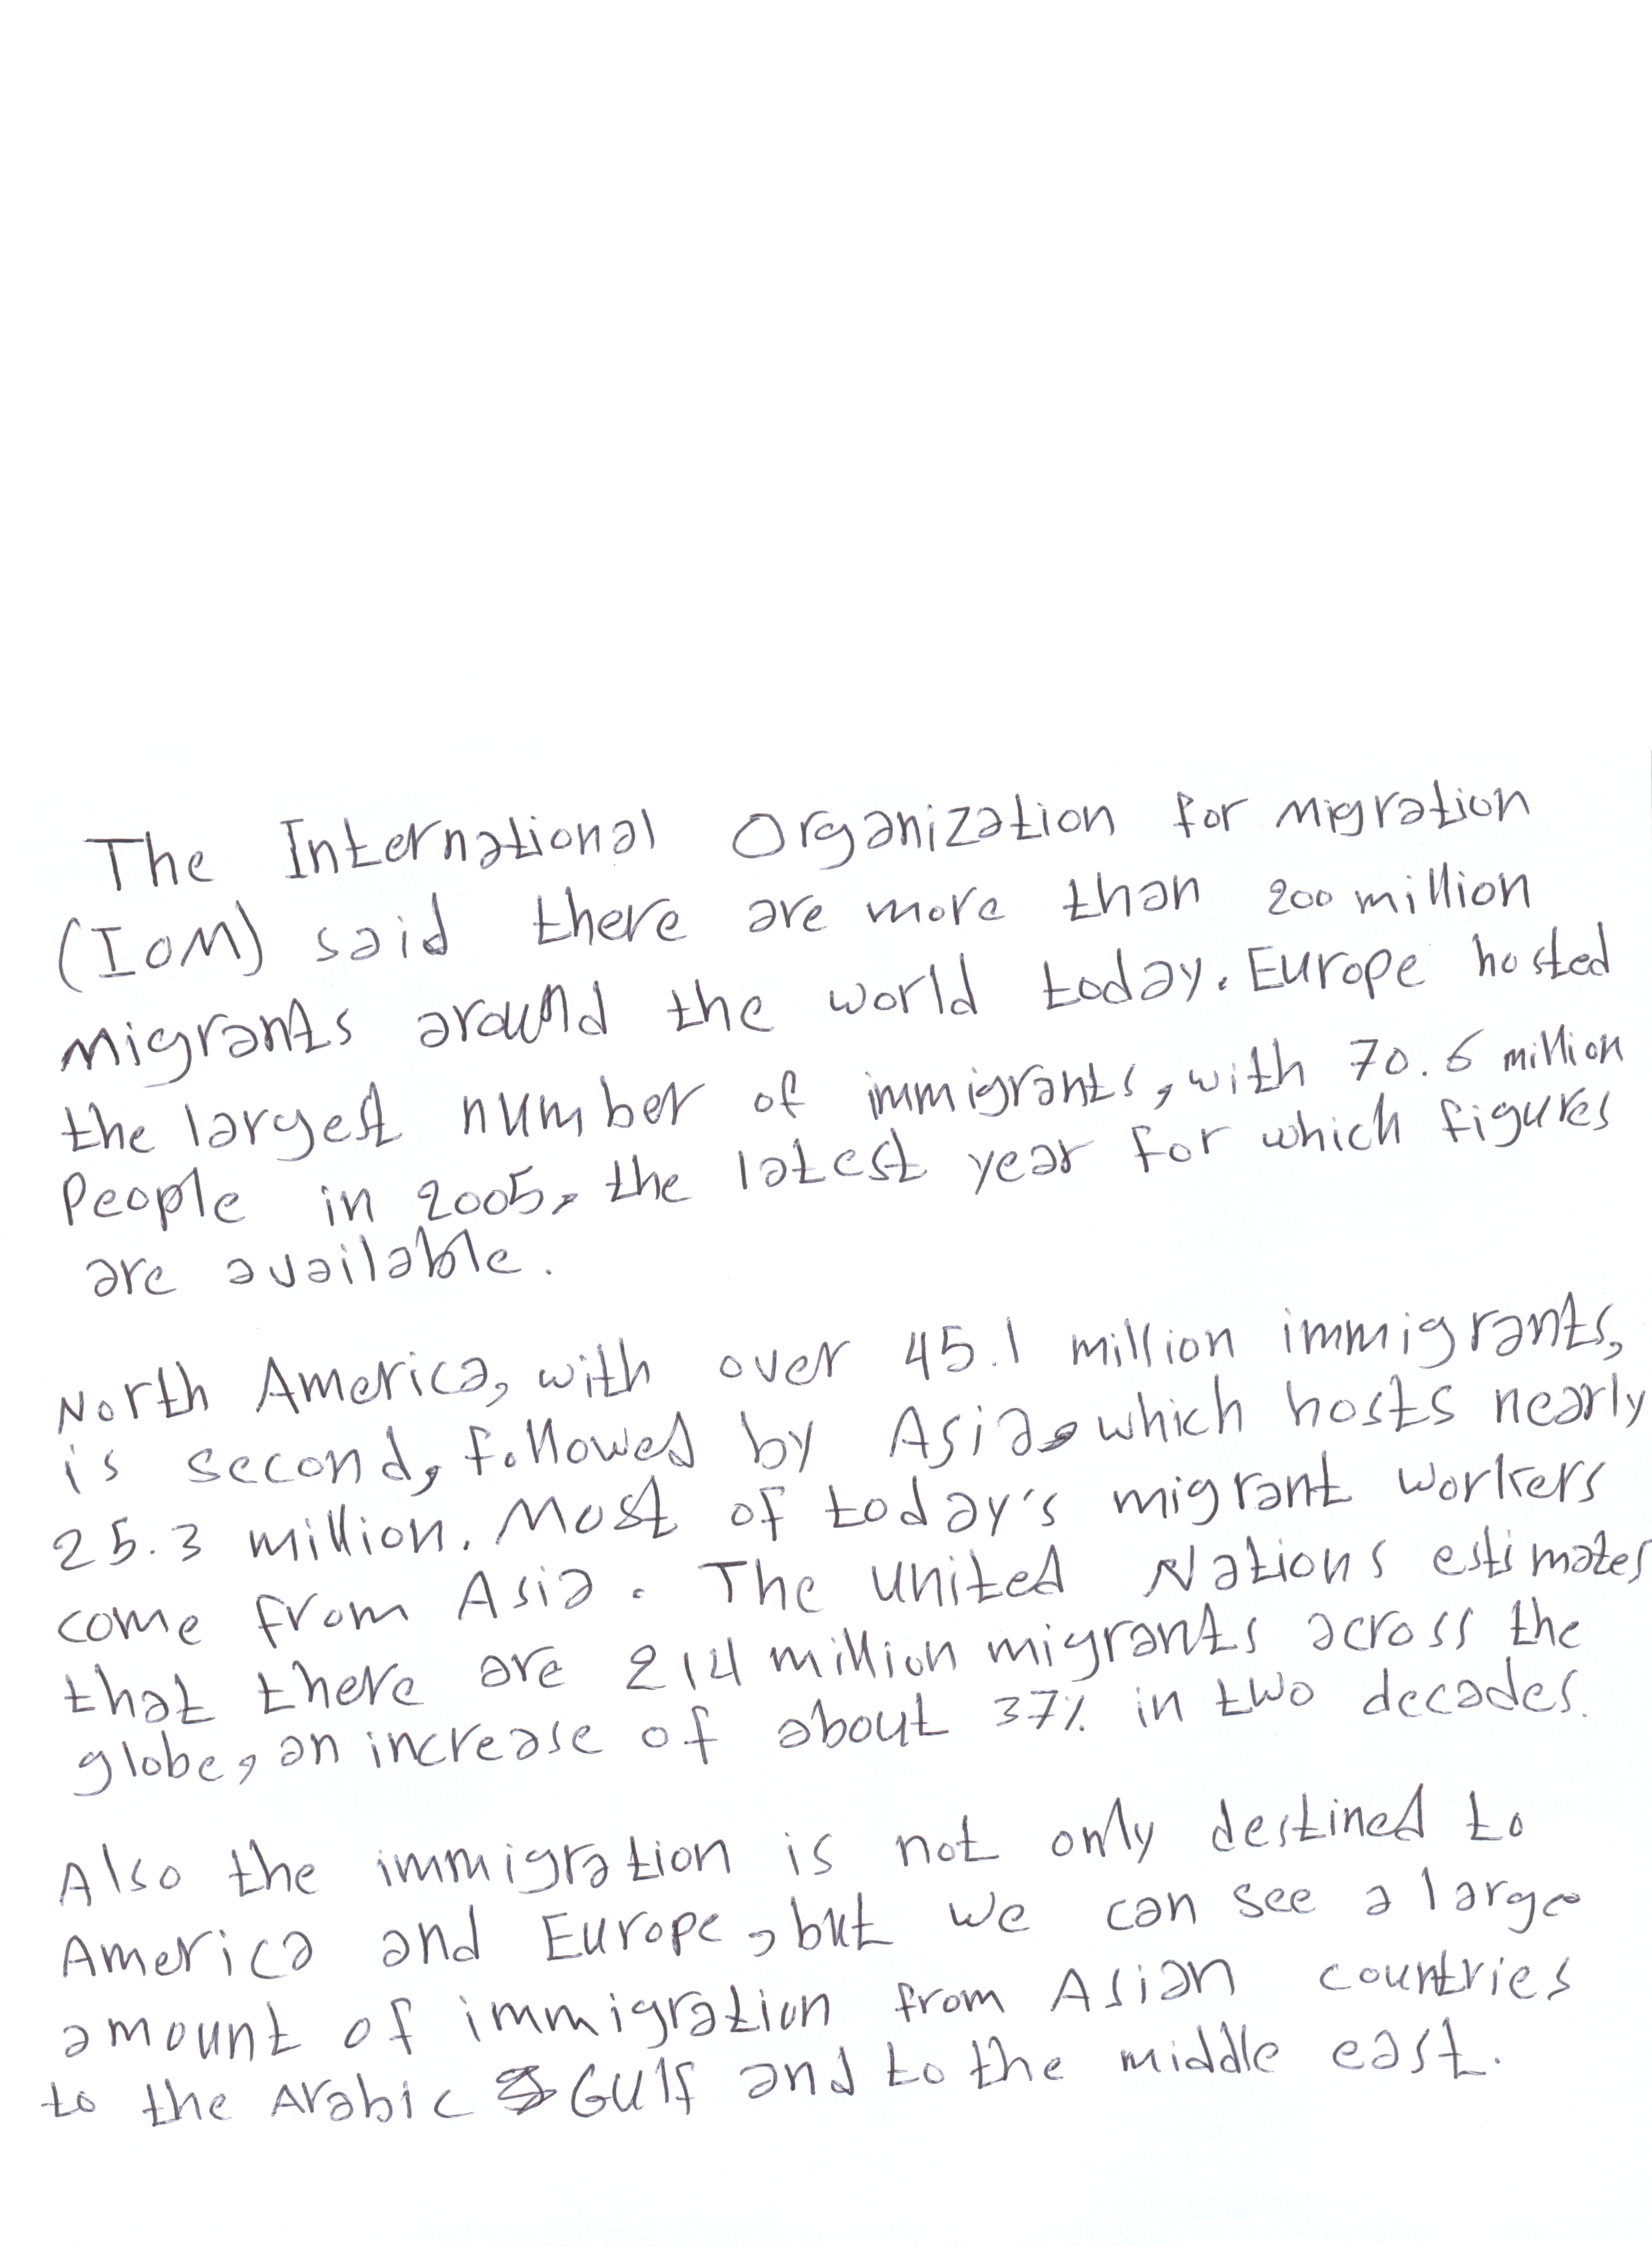 The International Organization for Migration
(IOM) said there are more than 200 million
migrants around the world today. Europe hosted
the largest number of immigrants, with 70.6 million
People in 2005, the latest year for which figures
are available.
North America, with over 45.1 million immigrants,
is second, followed by Asia, which hosts nearly
25.3 million. Most of today's migrant workers
come from Asia. The united Nations estimates
that there are 214 million migrants across the
globe, an increase of about 37% in two decades.
Also the immigration is not only destined to
America and Europe, but we can see a large
amount of immigration from Asian countries
to the Arabic Gulf and to the middle east.